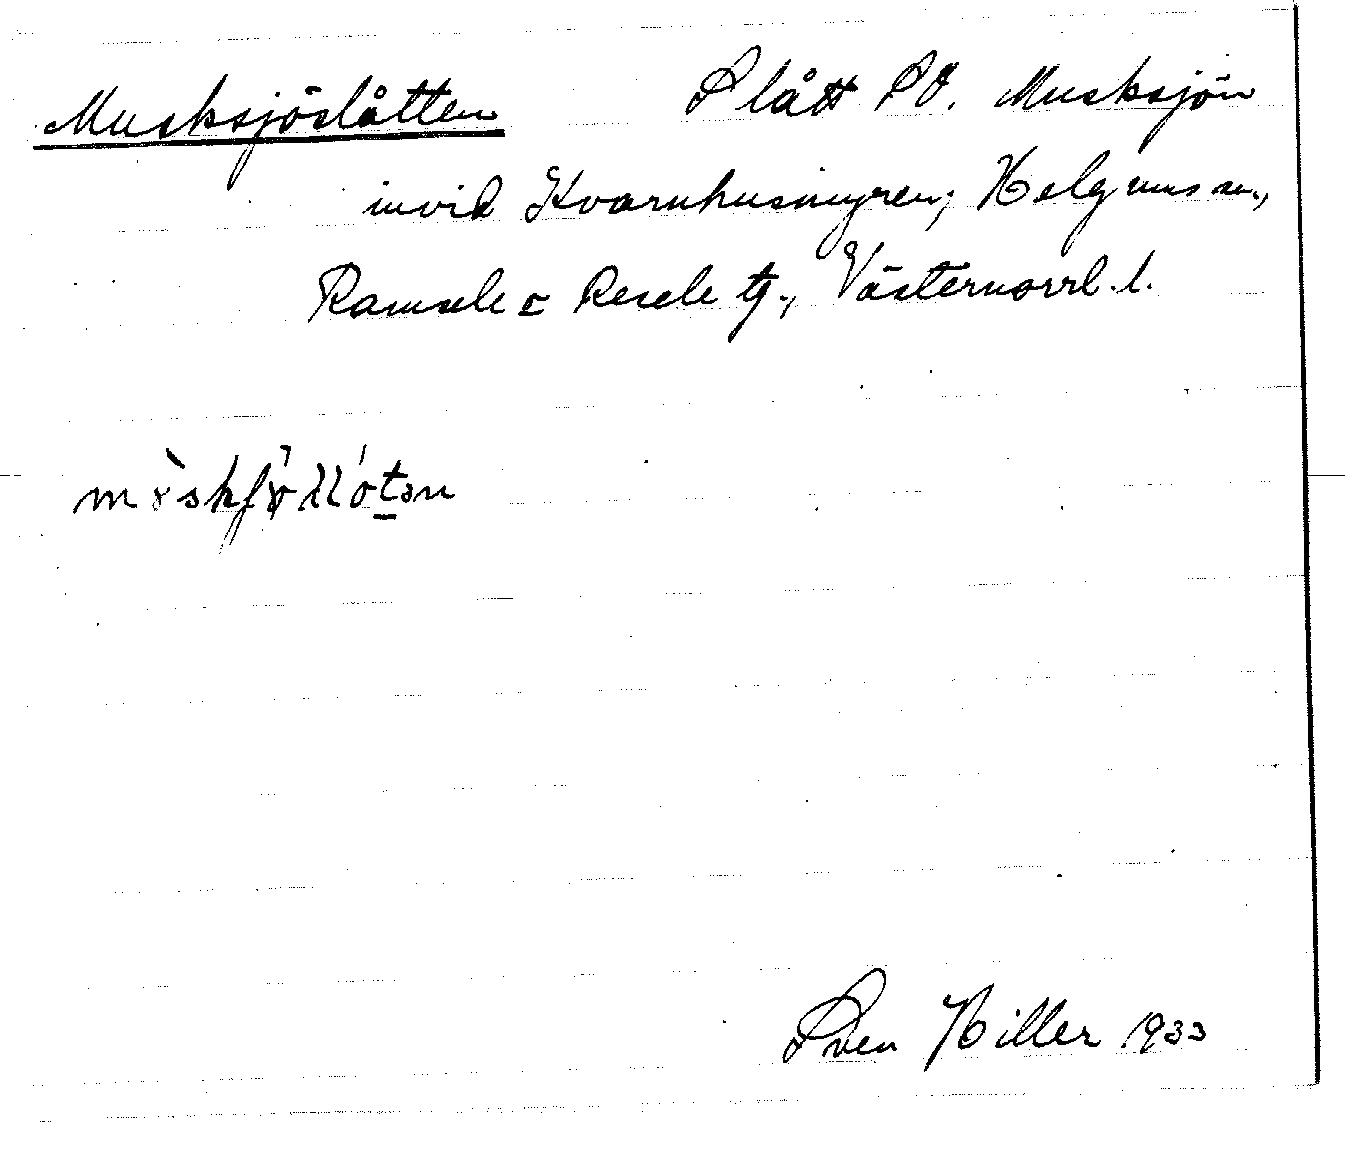 Musksjöslåtten Slått SV. Musksjön
invid Kvarnhusmyren, Helgums sn.,
Ramsele o Resele tg., Västernorrl. l.
Sven Hiller 1933